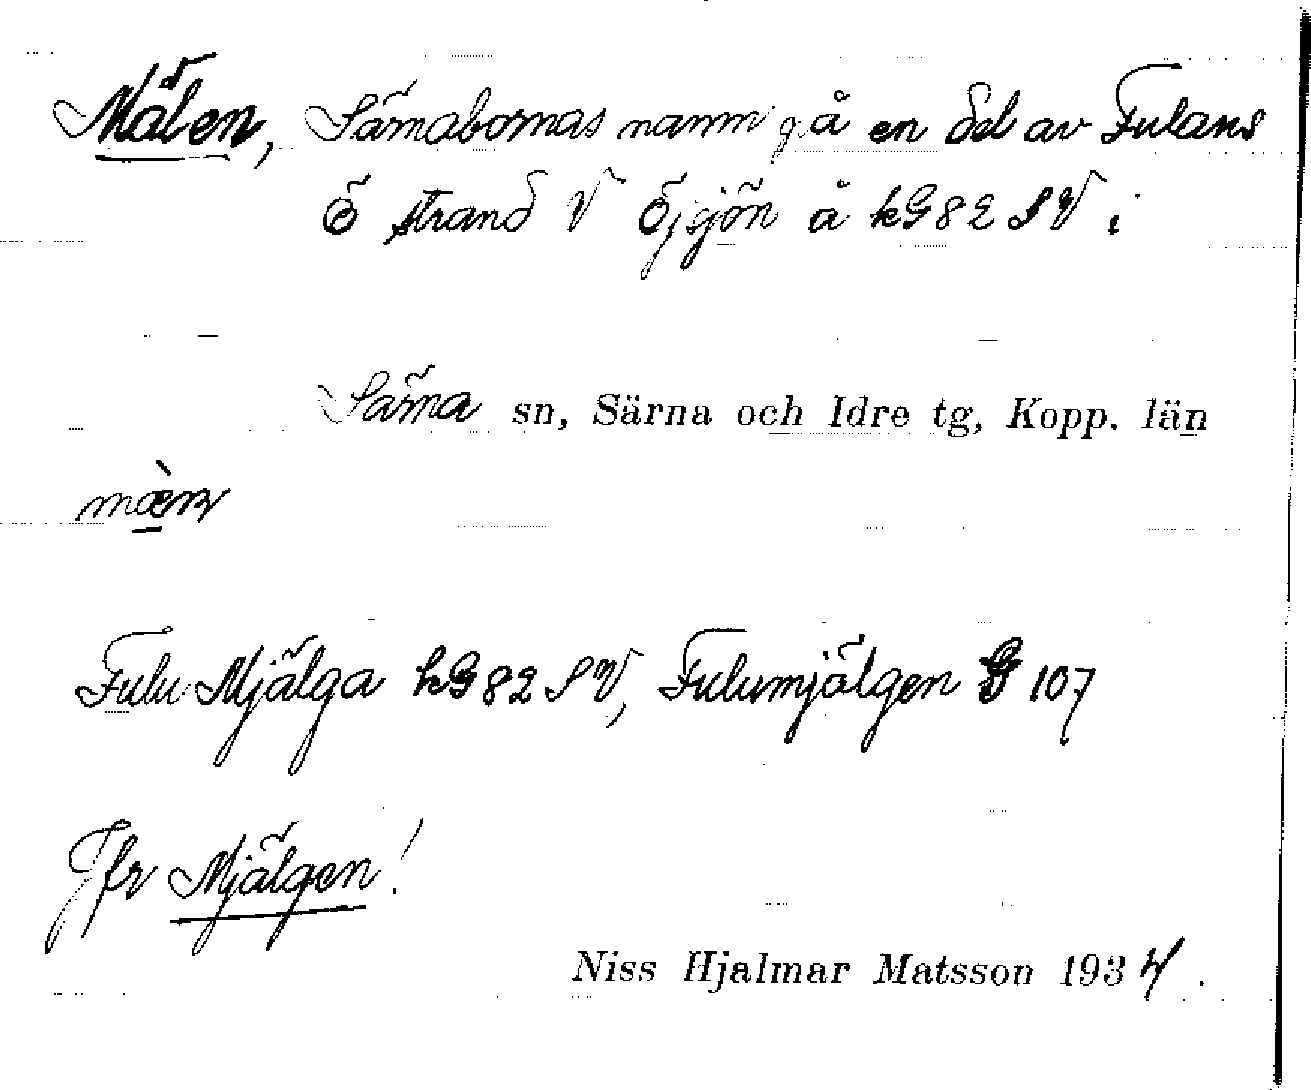 Mälen, Särnabornas namn på en del av Fulans
Ö strand V Öjsjön å kG82 SV i
Särna sn, Särna och Idre tg, Kopp. län
Fulu Mjälga kG82 SV, Fulumjälgen G 107
Jfr Mjälgen!
Niss Hjalmar Matsson 1934.